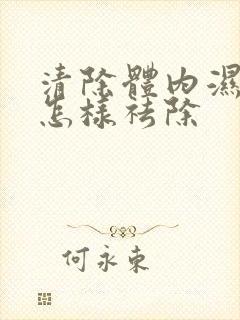 清除體內濕
怎樣祛除
何永東